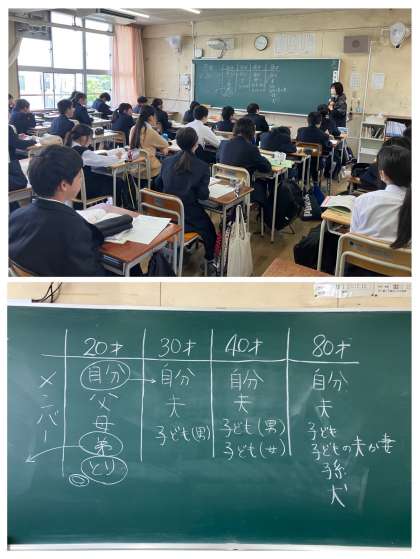 20才 30才 40才 80才
メンバー
自分 自分 自分 自分
父 夫 夫 夫
母 子ども(男) 子ども(男) 子ども
弟 子ども(女) 子どもの夫か妻
とり 孫
犬